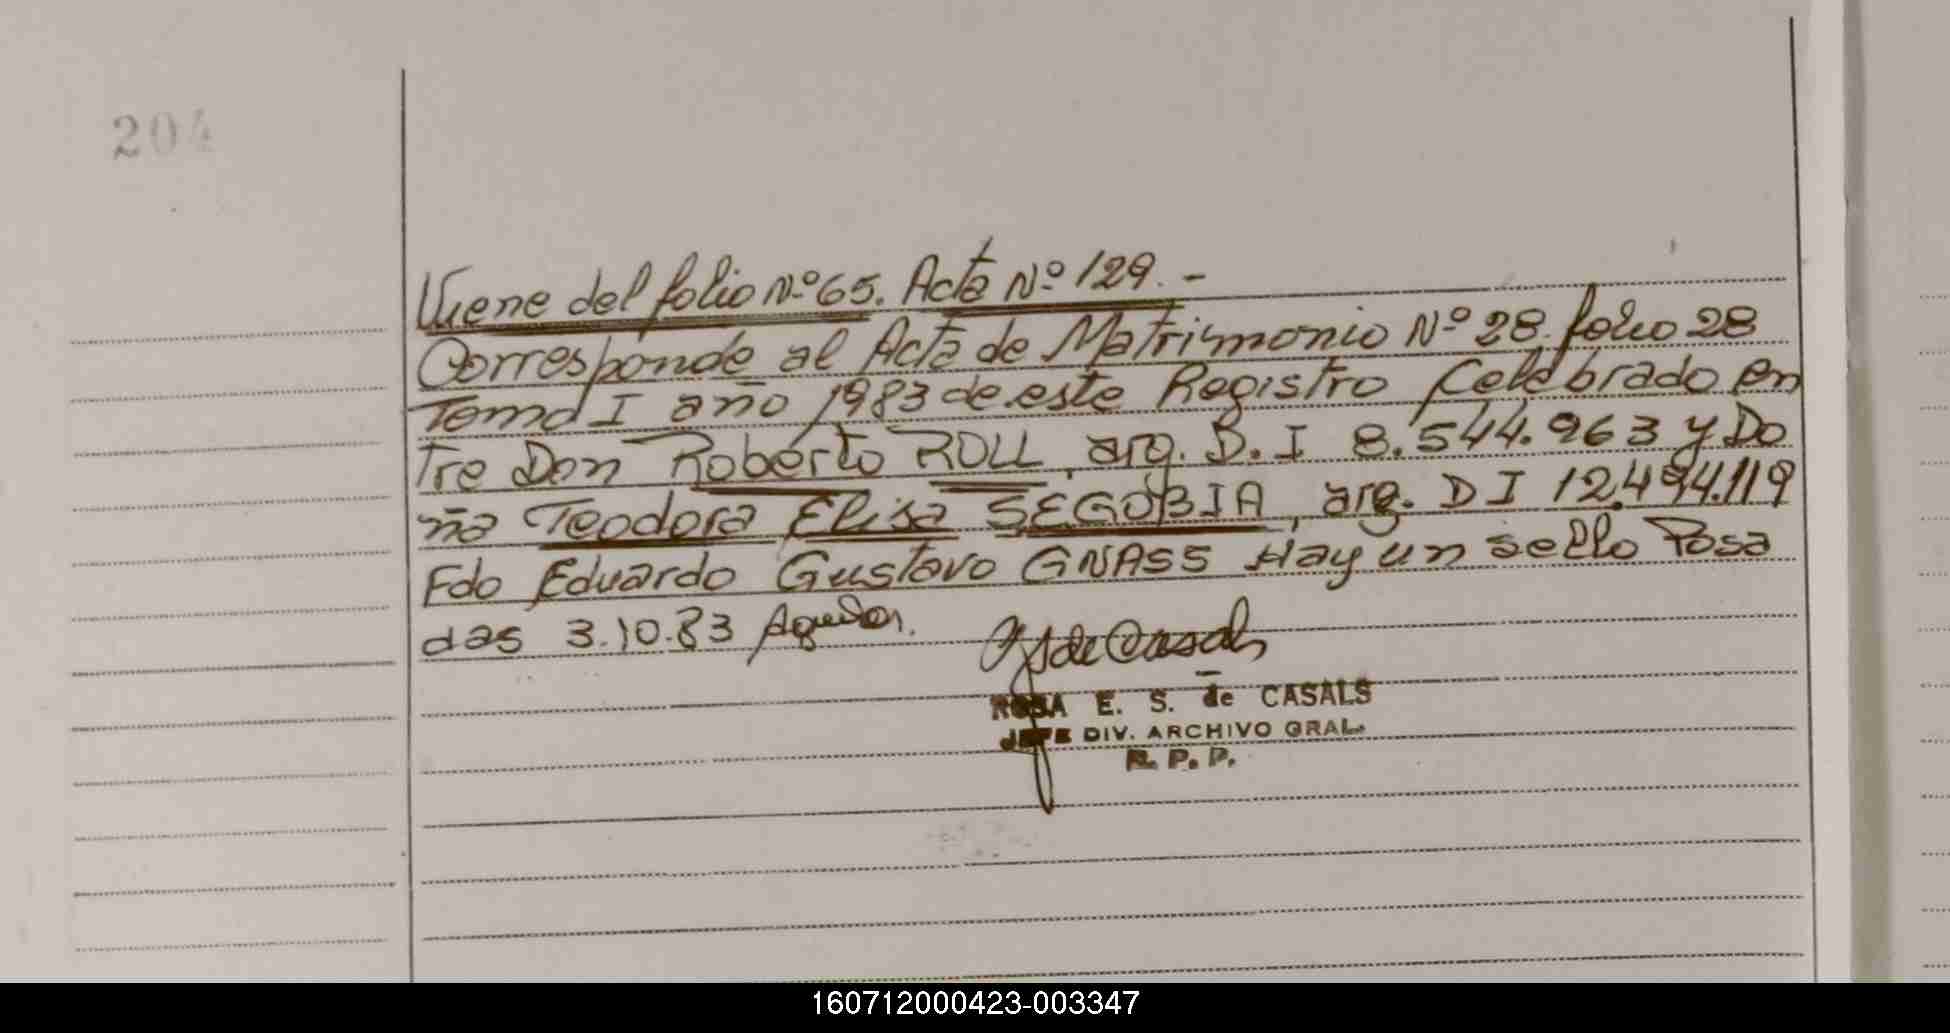 204
Viene del folio Nº 65. Acta Nº 129.-
Corresponde al Acta de Matrimonio Nº 28 folio 28
Tomo I año 1983 de este Registro Celebrado en
tre Don Roberto ROLL, arg. D.I 8.544.963 y Do
ña Teodora Elisa SEGOBIA, arg. D I 12.494.119
Fdo Eduardo Gustavo GNASS Hay un sello Posa
das 3.10.83
de Casals
ROSA E. S. de CASALS
JEFE DIV. ARCHIVO GRAL.
R. P. P.
160712000423-003347